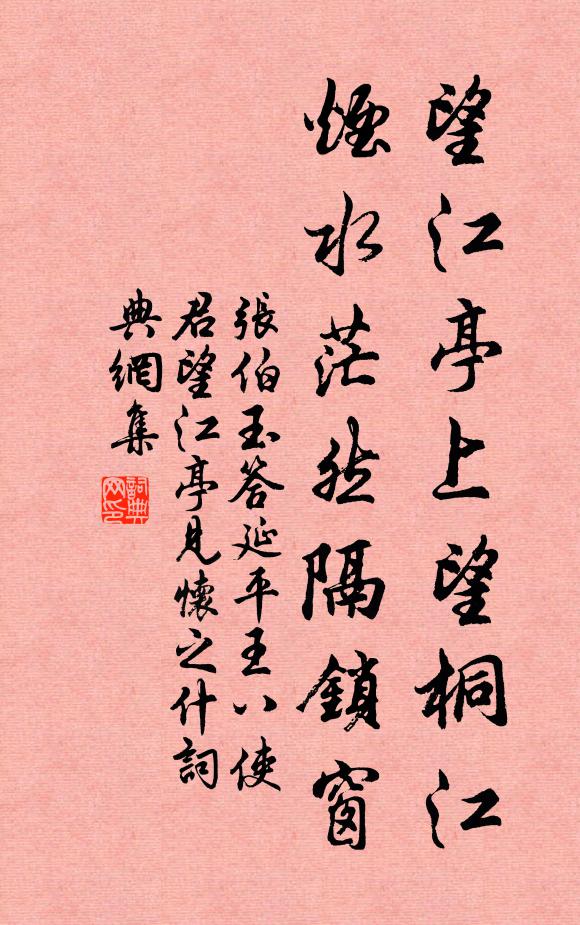 望江亭上望桐江
煙水茫然隔鎖窗
張伯玉答延平王八使
君望江亭見懷之什詞
典網集
詞典网印